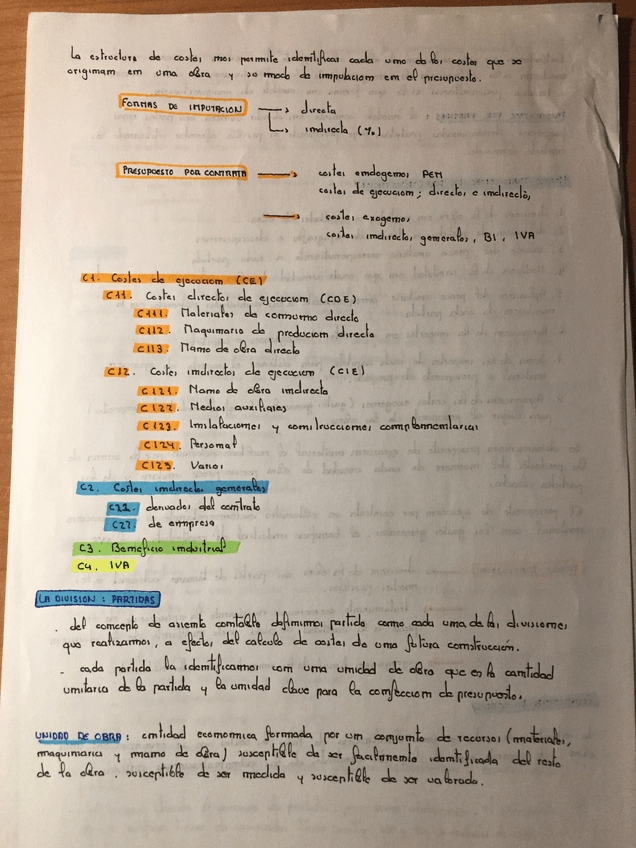 La estructura de costes nos permite identificar cada uno de los costes que se
originan en una obra y su modo de imputacion en el presupuesto.
FORMAS DE IMPUTACION → directa
→ indirecta (%)
PRESUPUESTO POR CONTRATA → costes endogenos PEM
costes de ejecucion; directos e indirectos,
→ costes exogenos
costes indirectos generales, BI, IVA
C1. Costes de ejecucion (CE)
C11. Costes directos de ejecucion (CDE)
C111. Materiales de consumo directo
C112. Maquinaria de producion directa
C113. Mano de obra directa
C12. Costes indirectos de ejecucion (CIE)
C121. Mano de obra indirecta
C122. Medios auxiliares
C123. Instalaciones y construcciones complementarias
C124. Personal
C125. Varios
C2. Costes indirectos generales
C21. derivados del contrato
C22. de empresa
C3. Beneficio industrial
C4. IVA
LA DIVISION: PARTIDAS
. del concepto de asiento contable definimos partida como cada una de las divisiones
que realizamos, a efectos del calculo de costes de una futura construcción.
- cada partida la identificamos con una unidad de obra que es la cantidad
unitaria de la partida y la unidad clave para la confeccion de presupuestos.
UNIDAD DE OBRA: entidad economica formada por un conjunto de recursos (materiales,
maquinaria y mano de obra) susceptible de ser facilmente identificada del resto
de la obra. susceptible de ser medida y susceptible de ser valorada.